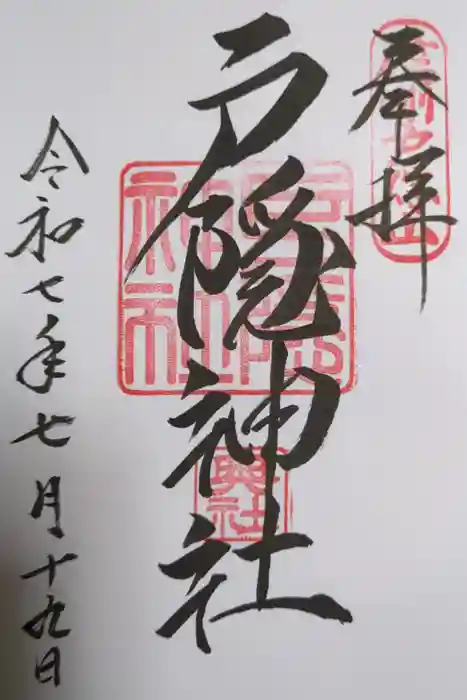 奉拝
戸隠神社
令和七年七月十九日
戸隠神社
奥社